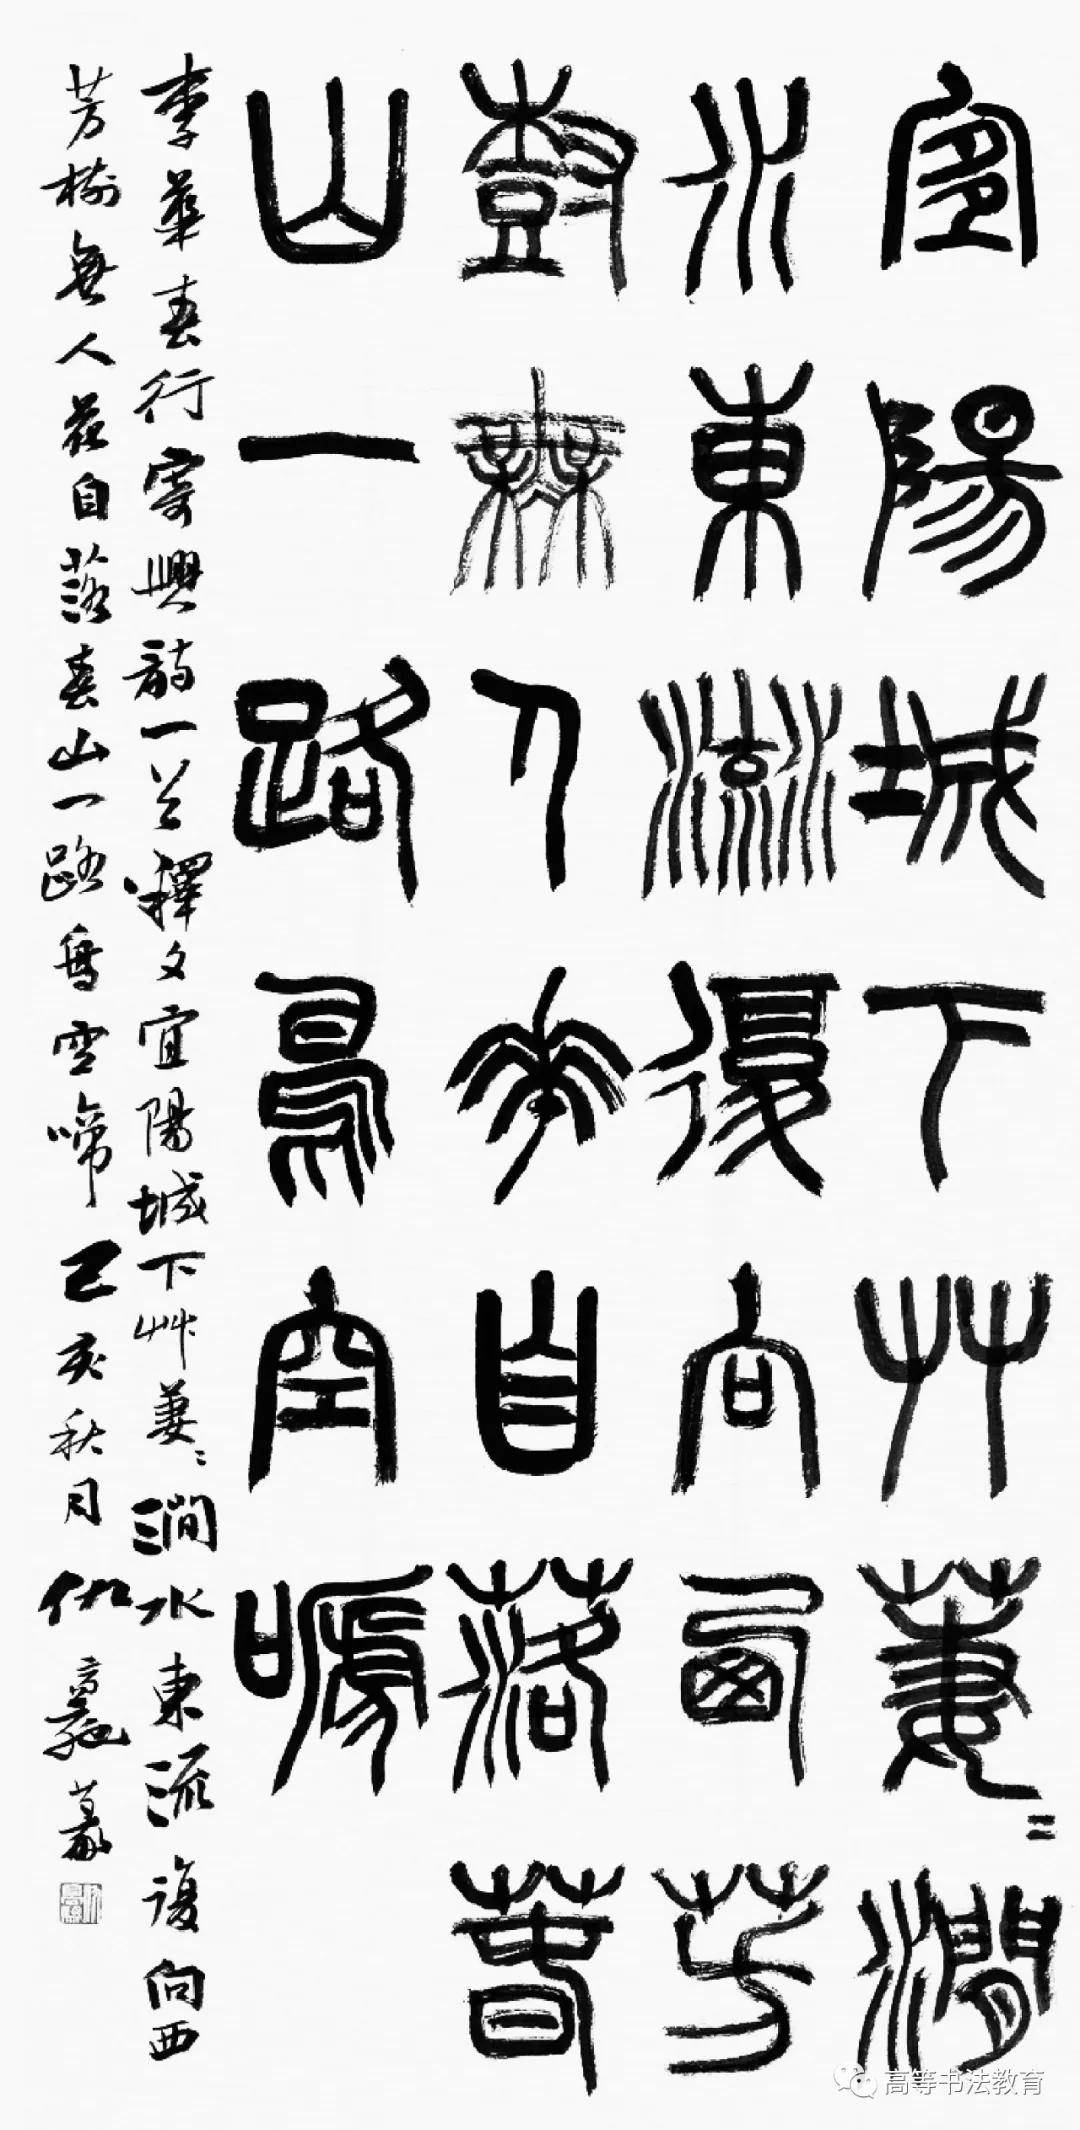 宜陽城下艸萋〻澗
水東流復向西芳
樹無人華自落春
山一路鳥空嗁
李華春行寄興詩一首釋文宜陽城下艸萋〻澗水東流復向西
芳樹無人花自落春山一路鳥空啼己亥秋月仇高馳篆
高等书法教育